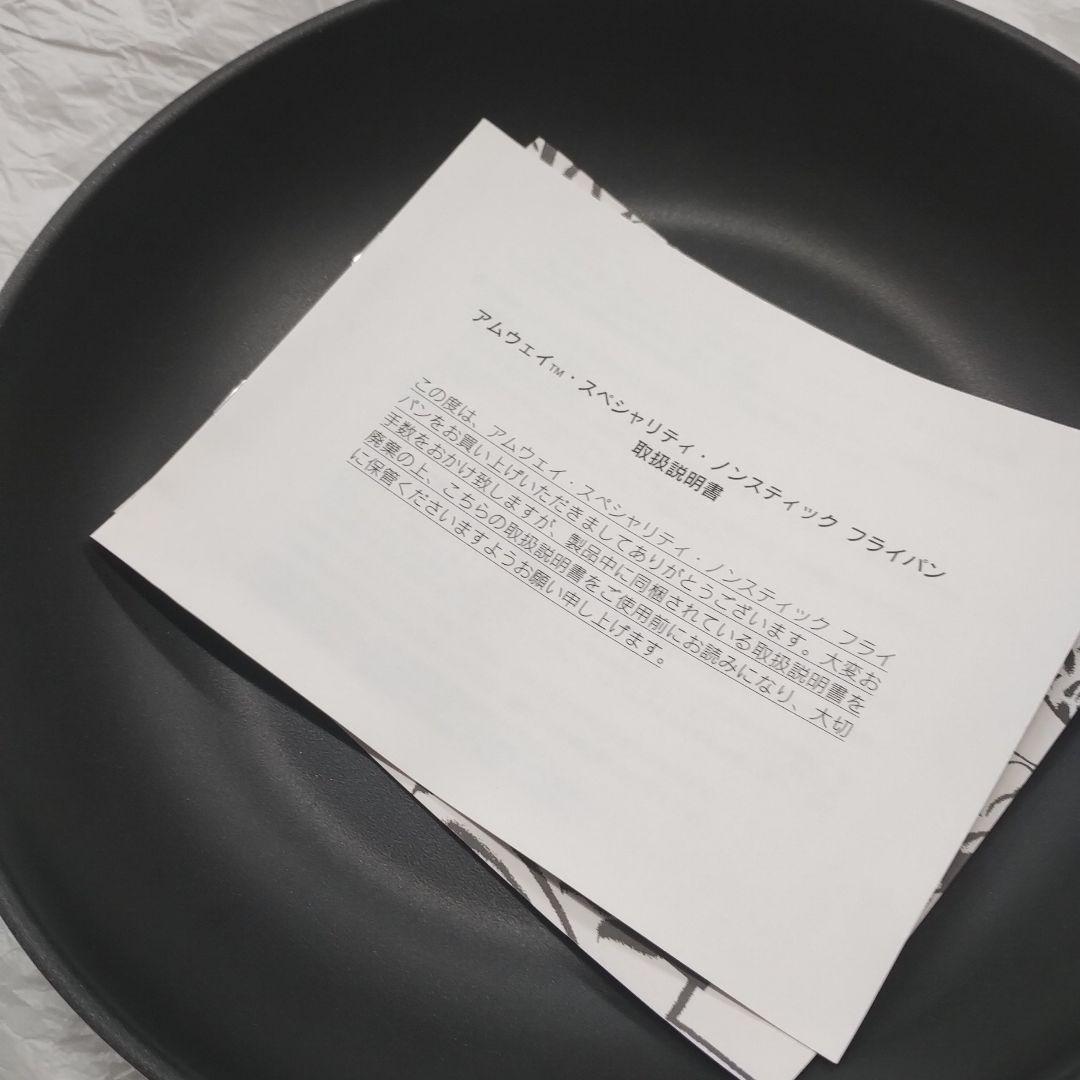 アムウェイ™・スペシャリティ・ノンスティック フライパン
取扱説明書
この度は、アムウェイ・スペシャリティ・ノンスティック フライ
パンをお買い上げいただきましてありがとうございます。大変お
手数をおかけ致しますが、製品中に同梱されている取扱説明書を
廃棄の上、こちらの取扱説明書をご使用前にお読みになり、大切
に保管くださいますようお願い申し上げます。